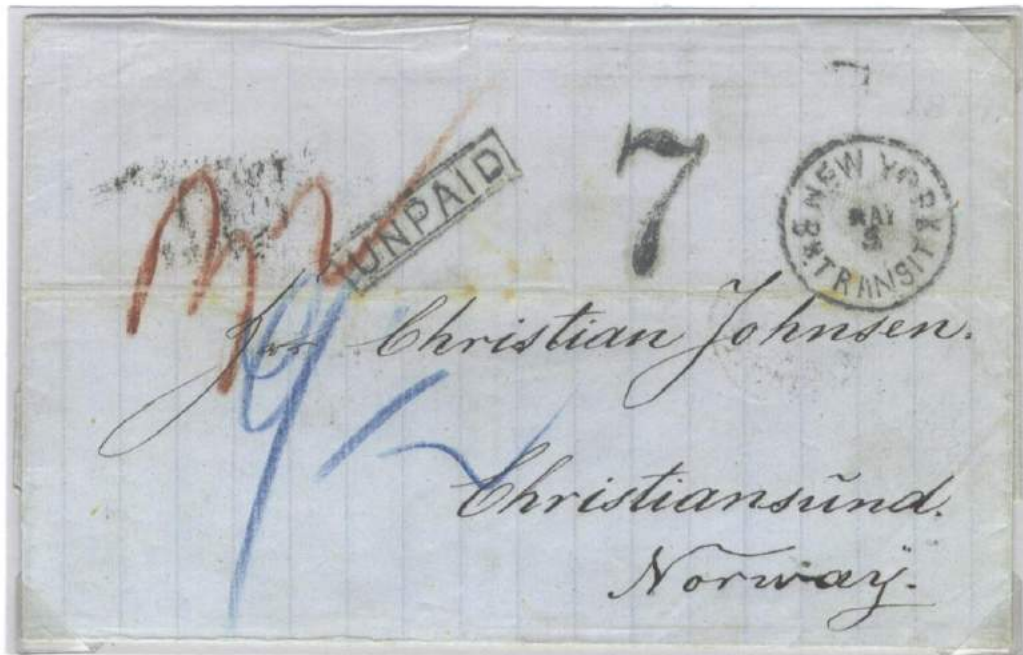 UNPAID
7
NEW YORK TRANSIT
MAY
Christian Johnsen.
Christiansünd.
Norway.